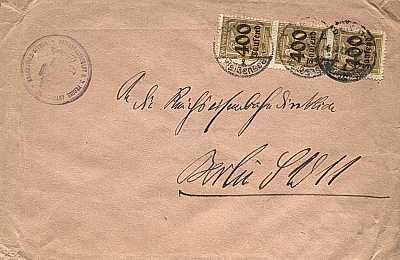 400
Tausend
400
Tausend
400
Tausend
Weißensee
An die Reichseisenbahndirektion
Berlin SW 11